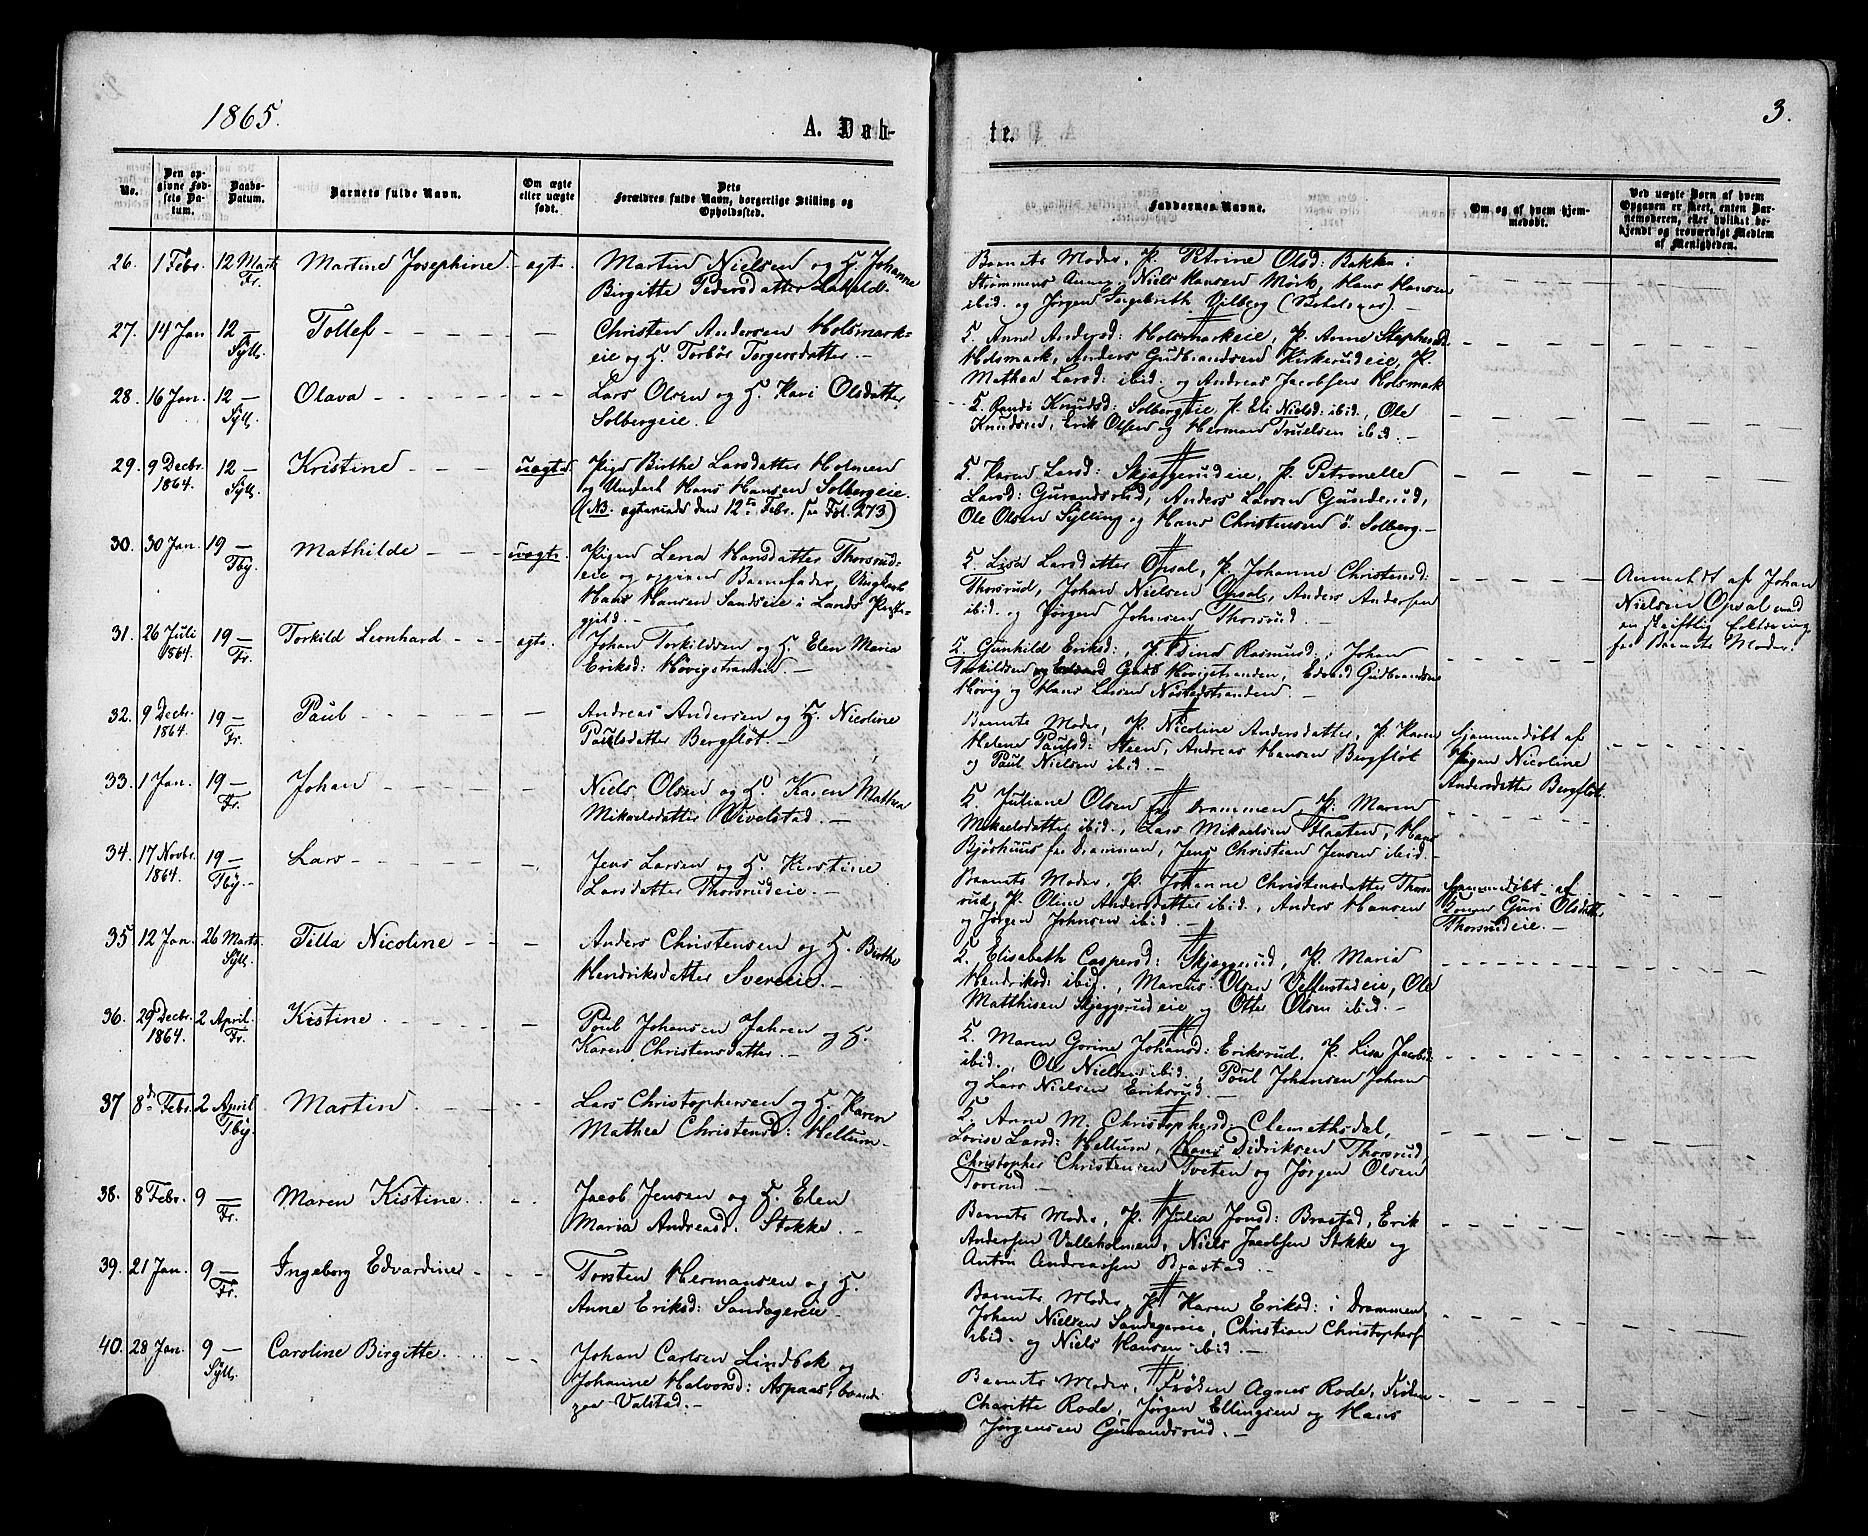 1865.
A. Døb-
te.
3.
No.
Den op-
givne Fød-
sels Da-
tum.
Daabs-
Datum.
Barnets fulde Navn.
Om ægte
eller uægte
født.
Dets
Forældres fulde Navn, borgerlige Stilling og
Opholdssted.
Faddernes Navne.
Om og af hvem hjem-
medøbt.
Ved uægte Børn af hvem
Opgaven er skeet, enten Bar-
nemoderen, eller hvilket be-
kjendt og troværdigt Medlem
af Menigheden.
26. 1 Febr. 12 Marts Fr. Martine Josephine - ægte.
Martin Nielsen og H. Johanne
Birgitte Pedersdatter
Barnets Moder, P. Petrine Olsd: Bakke i
Strømmens Annex, Niels Hansen Mörk, Hans Hansen
ibid. og Jørgen Vilberg
27. 14 Jan. 12 - Sÿll. Tollef
Christen Andersen Holsmark-
eie og H. Torbör Torgersdatter.-
5. Anne Andersd: Holsmarkeie, P. Anne Stephensd
Holsmark, Anders Gudbrandsen Kirkerudeie, P.
Mathea Larsd: ibid. og Andreas Jacobsen Holsmark
28. 16 Jan. 12 - Sÿll. Olava
Lars Olsen og H. Kari Olsdatter
Solbergeie.
5. Randi Knudsd: Solbergeie, P. Eli Nielsd: ibid., Ole
Knudsen, Erik Olsen og Herman Truelsen ibid.-
29. 9 Decbr. 1864. 12 - Sÿll. Kristine - uægte.
Pige Birthe Larsdatter Holmen
og Ungkarl Hans Hansen Solbergeie.
(NB. ægteviede den 12te Febr. se Fol. 273)
5. Karen Larsd: Skjæggerudeie, P. Petronelle
Larsd: Gurandsrud, Anders Larsen Gunderud,
Ole Olsen Sylling og Hans Christensen ö. Solberg.-
30. 30 Jan. 19 - Tby. Mathilde - uægte.
Pigen Lena Hansdatter Thorsrud-
eie og opgiven Barnefader, Ungkarl
Hans Hansen Sandseie i Lands Præste-
gjeld.-
5. Lisa Larsdatter Opsal, P. Johanne Christensd:
Thorsrud, Johan Nielsen Opsal, Anders Andersen
ibid. og Jørgen Johnsen Thorsrud.
Anmeldt af Johan
Nielsen Opsal med
en skriftlig Erklæring
fra Barnets Moder.
31. 26 Juli 1864. 19 - Fr. Torkild Leonhard - ægte.
Johan Torkildsen og H. Elen Maria
Eriksd: Hövigstranden.-
5. Gunhild Eriksd:, P. Dina Rasmusd:, Johan
Torkildsen Hovigstranden, Edvard Gudbrandsen
Hövig og Hans Larsen Nöstestranden.-
32. 9 Decbr. 1864. 19 - Fr. Paul
Andreas Andersen og H. Nicoline
Paulsdatter Bergflöt.-
Barnets Moder, P. Nicoline Andersdatter, P. Karen
Helene Paulsd: Steen, Andreas Hansen Bergflöt
og Paul Nielsen ibid.-
Hjemmedøbt af
Pigen Nicoline
Andersdatter Bergflöt.
33. 1 Jan. 19 - Fr. Johan
Niels Olsen og H. Karen Mathea
Mikaelsdatter Vivelstad.-
5. Juliane Olsen fra Drammen, P. Maren
Mikaelsdatter ibid., Lars Mikaelsen Flaaten, Hans
Björhuus fra Drammen, Jens Christian Jensen ibid.-
34. 17 Novbr. 1864. 19 - Tby.- Lars
Jens Larsen og H. Kirstine
Larsdatter Thorsrudeie.-
Barnets Moder, P. Johanne Christensdatter Thors-
rud, P. Oline Andersdatter ibid., Anders Hansen
og Jørgen Johnsen ibid.-
Hjemmedøbt af
Konen Guri Olsdatter
Thorsrudeie.-
35. 12 Jan. 26 Marts. Sÿll. Tilla Nicoline
Anders Christensen og H. Birthe
Hendriksdatter Svereeie.-
5. Elisabeth Caspersd: Skjæggrud, P. Maria
Hendriksd: ibid., Marcus Olsen Vefferstadeie, Ole
Matthisen Skjæggrudeie og Otter Olsen ibid.-
36. 29 Decbr. 1864. 2 April. Fr. Kistine
Poul Johansen Jahren og H.
Karen Christensdatter.-
5. Maren Gorine Johansd: Eriksrud, P. Lisa Jacobsd:
ibid., Ole Nielsen ibid., Poul Johansen Jahren
og Lars Nielsen Eriksrud.-
37 8de Febr. 2 April Tby. Martin
Lars Christophersen og H. Karen
Mathea Christensd: Hellum.-
5. Anne M. Christophersd: Clemethsdal,
Lovise Larsd: Hellum, Hans Didriksen Thorsrud,
Christopher Christensen Tveten og Jörgen Olsen
Toverud.-
38. 8 Febr. 9 - Fr. Maren Kistine
Jacob Jensen og H. Elen
Maria Andreasd: Stokke.-
Barnets Moder, P. Julia Jonsd: Brastad, Erik
Andersen Valleholmen, Niels Jacobsen Stokke og
Anton Andreassen Brastad.-
39. 21 Jan. 9 - Fr. Ingeborg Edvardine
Torsten Hermansen og H.
Anne Eriksd: Sandagereie.-
Barnets Moder, P. Karen Eriksd: i Drammen,
Johan Nielsen Sandagereie, Christian Christophers:
ibid. og Niels Hansen ibid.-
40. 28 Jan. 9 - Sÿll. Caroline Birgitte
Johan Carlsen Lindbek og
Johanne Halvorsd: Aspaas,
paa Valstad.-
Barnets Moder, Fröken Agnes Rode, Fröken
Charitte Rode, Jörgen Ellingsen og Hans
Jörgensen Gurandsrud.-